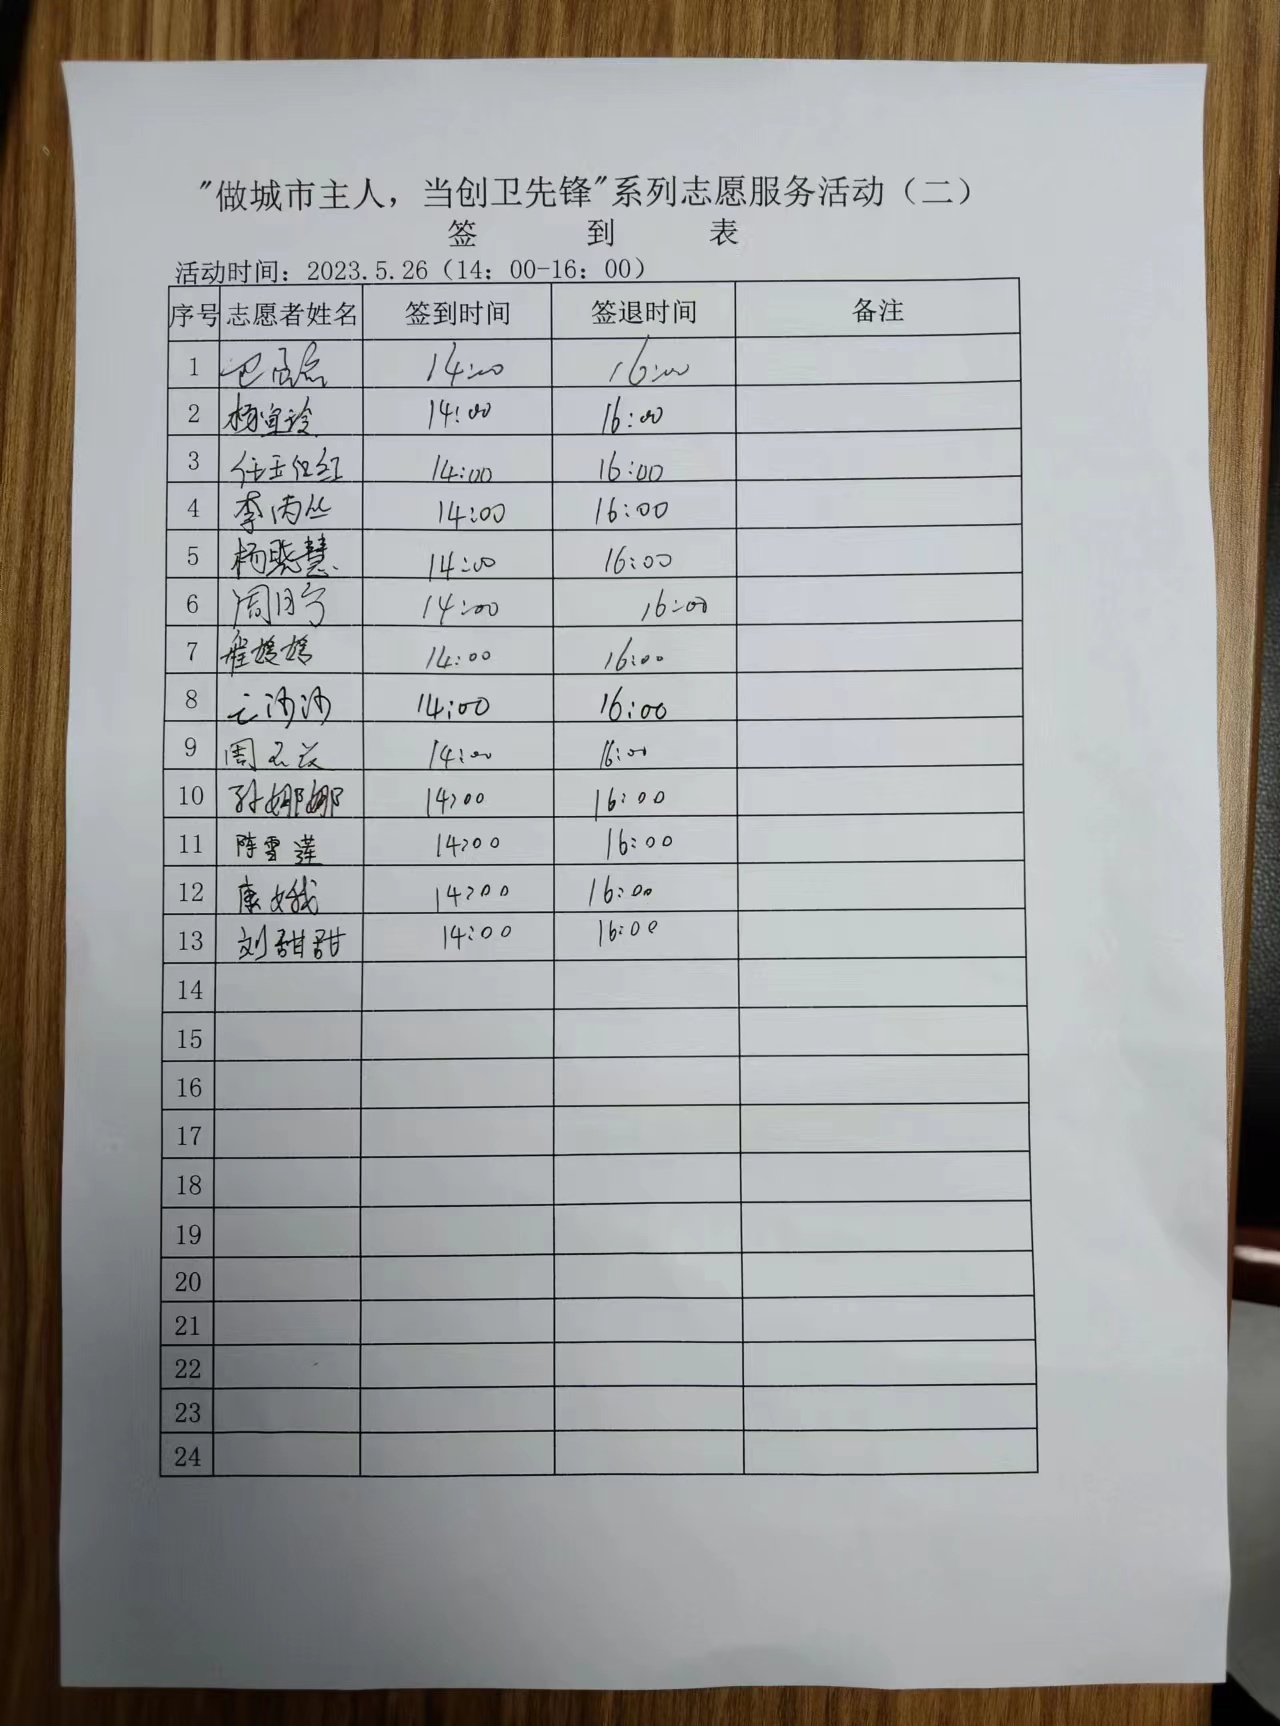 "做城市主人，当创卫先锋"系列志愿服务活动（二）
签 到 表
活动时间：2023.5.26（14：00-16：00）
序号 志愿者姓名 签到时间 签退时间 备注
1 14:00 16:00
2 杨宜玲 14:00 16:00
3 14:00 16:00
4 李丙丛 14:00 16:00
5 杨晓慧 14:00 16:00
6 周月宁 14:00 16:00
7 崔嫔嫔 14:00 16:00
8 沙沙 14:00 16:00
9 周 14:00 16:00
10 孙娜娜 14:00 16:00
11 陈雪莲 14:00 16:00
12 康女钱 14:00 16:00
13 刘甜甜 14:00 16:00
14
15
16
17
18
19
20
21
22
23
24